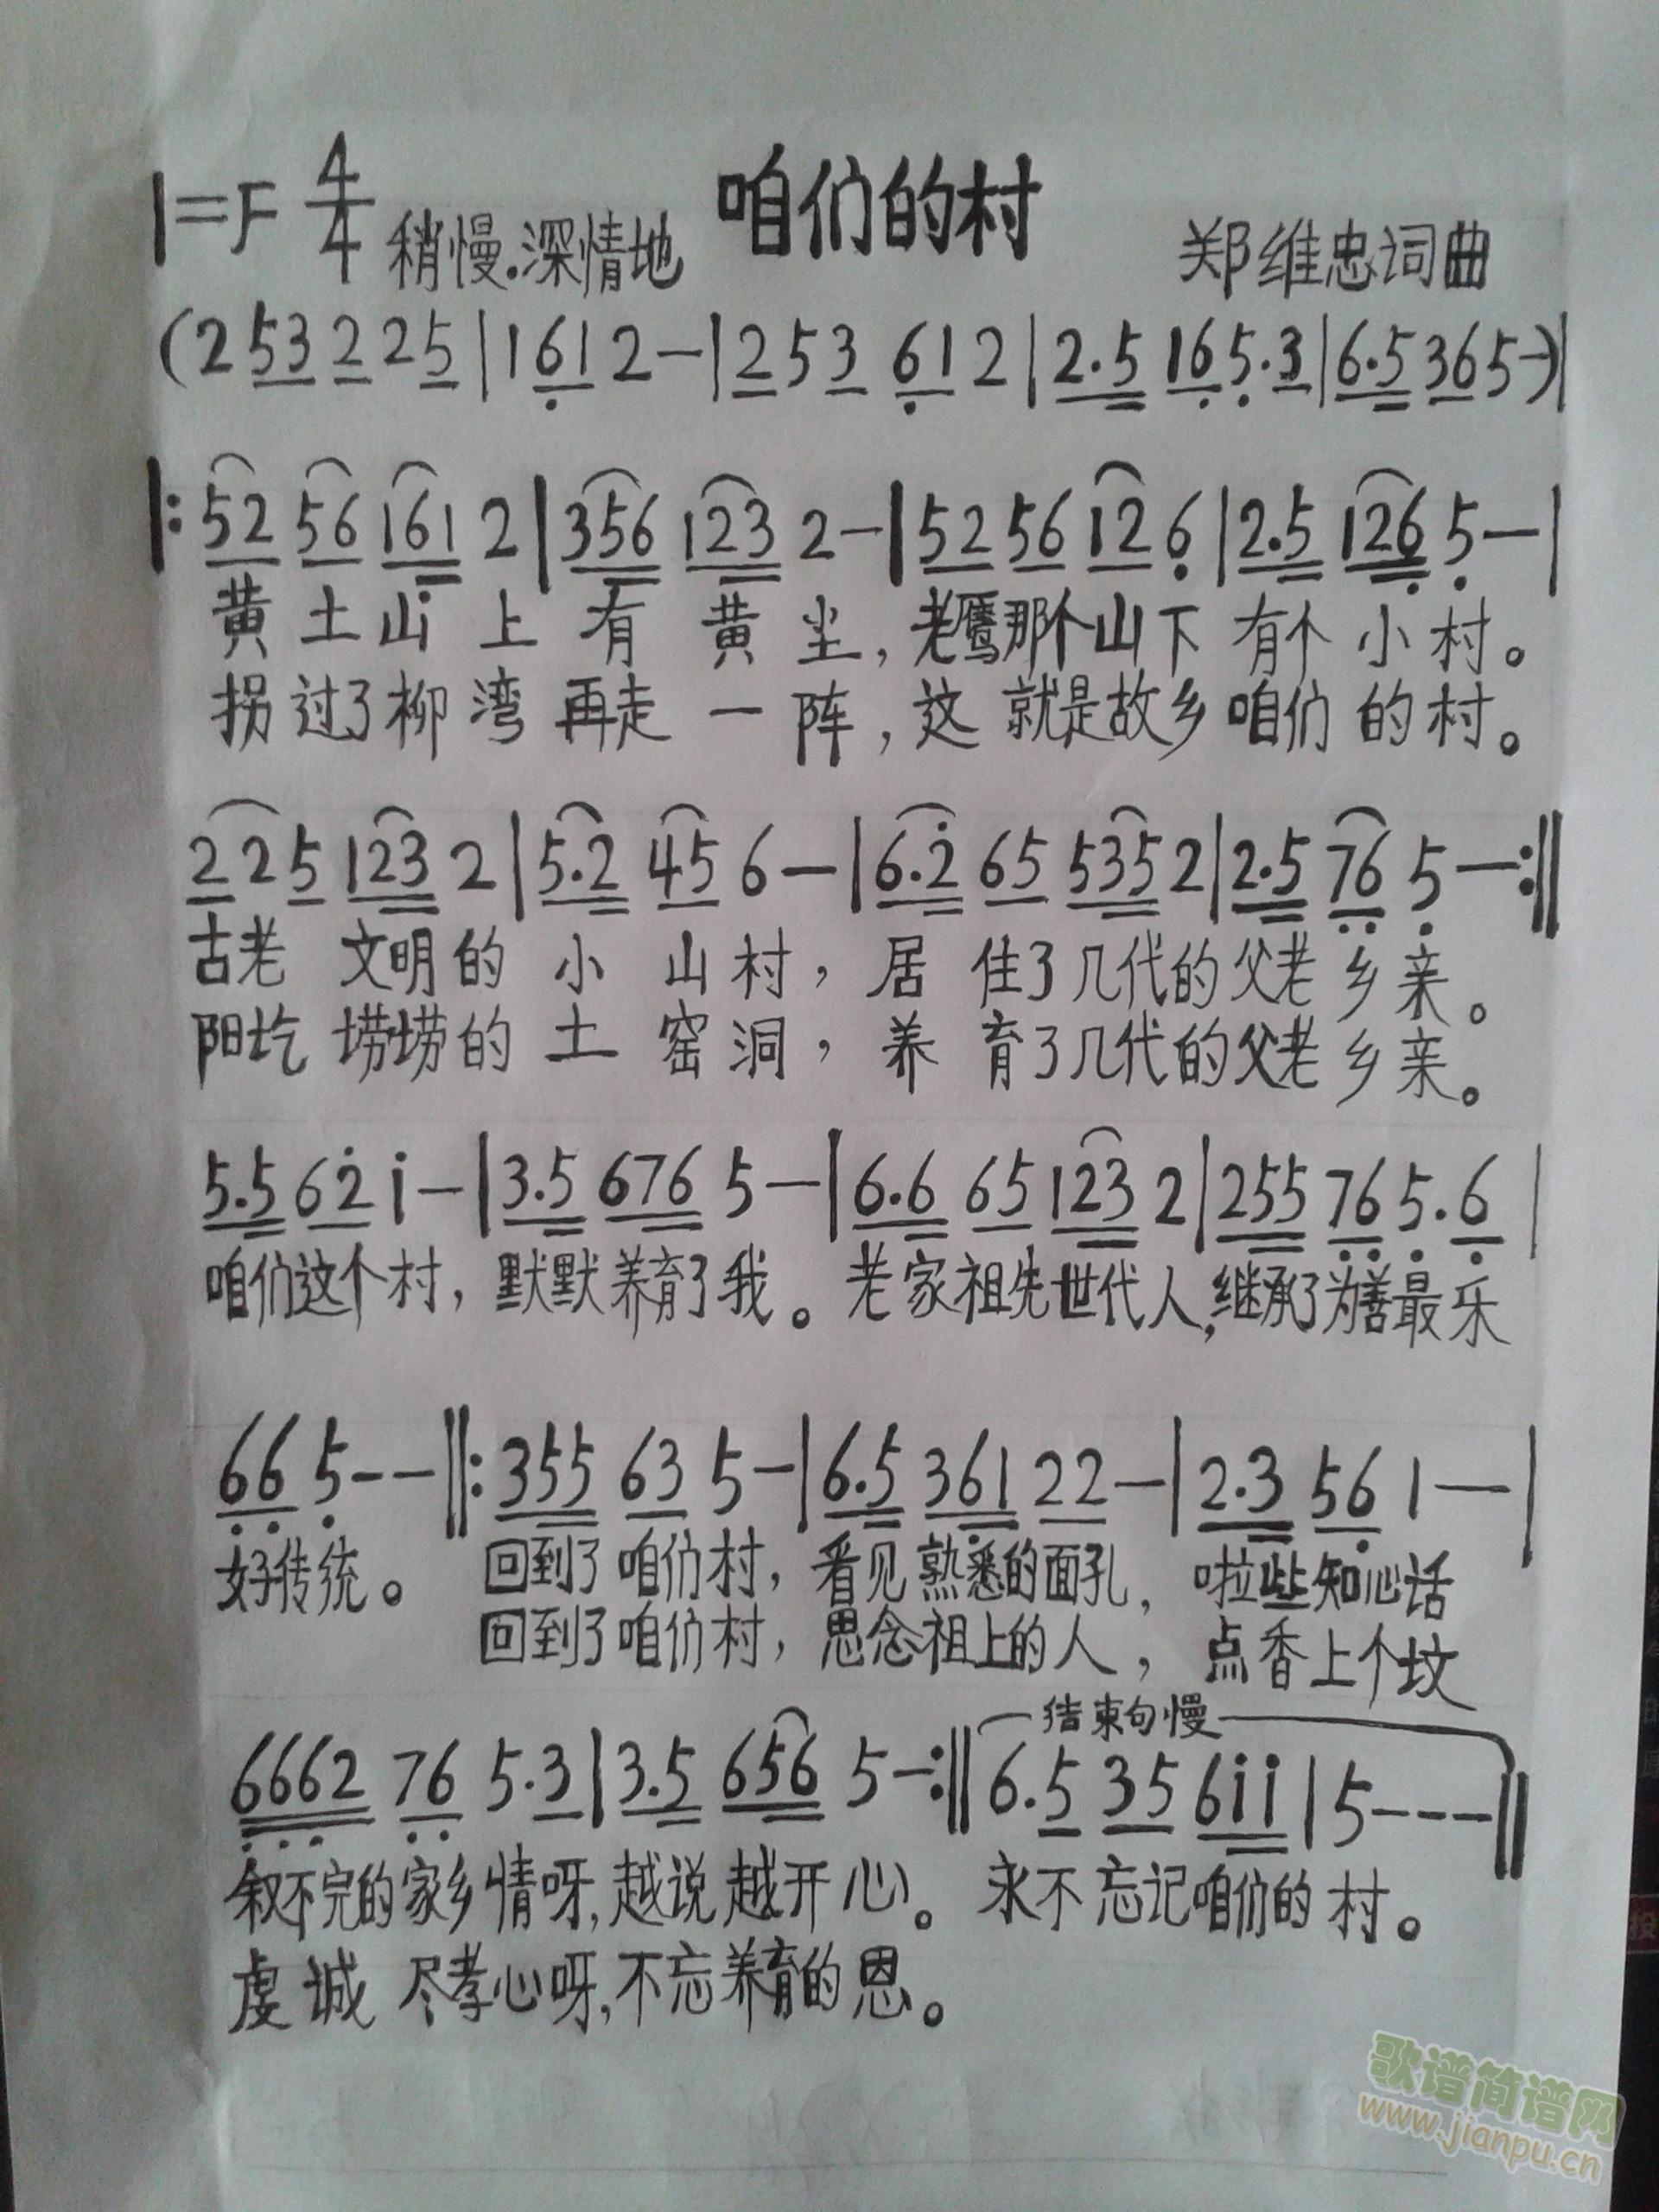 1=F 4/4 稍慢.深情地 咱们的村 郑维忠词曲
(2 53 2 2 5 | 1 61 2 — | 2 5 3 61 2 | 2.5 16 5.3 | 6.5 36 5 —) |
|: 52 56 161 2 | 356 123 2 — | 52 56 12 6 | 2.5 126 5 — |
黄 土 山 上 有 黄 尘, 老鹰那个山下 有个 小 村。
拐 过了 柳 湾 再走 一 阵, 这 就是故乡 咱们 的 村。
2 2 5 123 2 | 5.2 45 6 — | 6.2̇ 65 535 2 | 2.5 76 5 — :||
古老 文明 的 小 山 村, 居 住了几代的父老 乡 亲。
阳圪 塄塄 的 土 窑 洞, 养 育了几代的父老 乡 亲。
5.5 62̇ i — | 3.5 676 5 — | 6.6 65 123 2 | 255 76 5.6 |
咱们这个 村, 默默养育了我。 老家祖先世代人,继承了为善最乐
66 5 - - ||: 355 63 5 — | 6.5 361 22 — | 2.3 56 1 — |
好传统。 回到了咱们村, 看见熟悉的面孔, 啦些知心话
回到了咱们村, 思念祖上的人, 点香上个坟
结束句慢
6662 76 5.3 | 3.5 656 5 — :|| 6.5 35 6ii | 5 - - - ||
叙不完的家乡情呀,越说越开心。 永不忘记咱们的村。
虔诚 尽孝心呀,不忘养育的恩。
歌谱简谱网
www.jianpu.cn